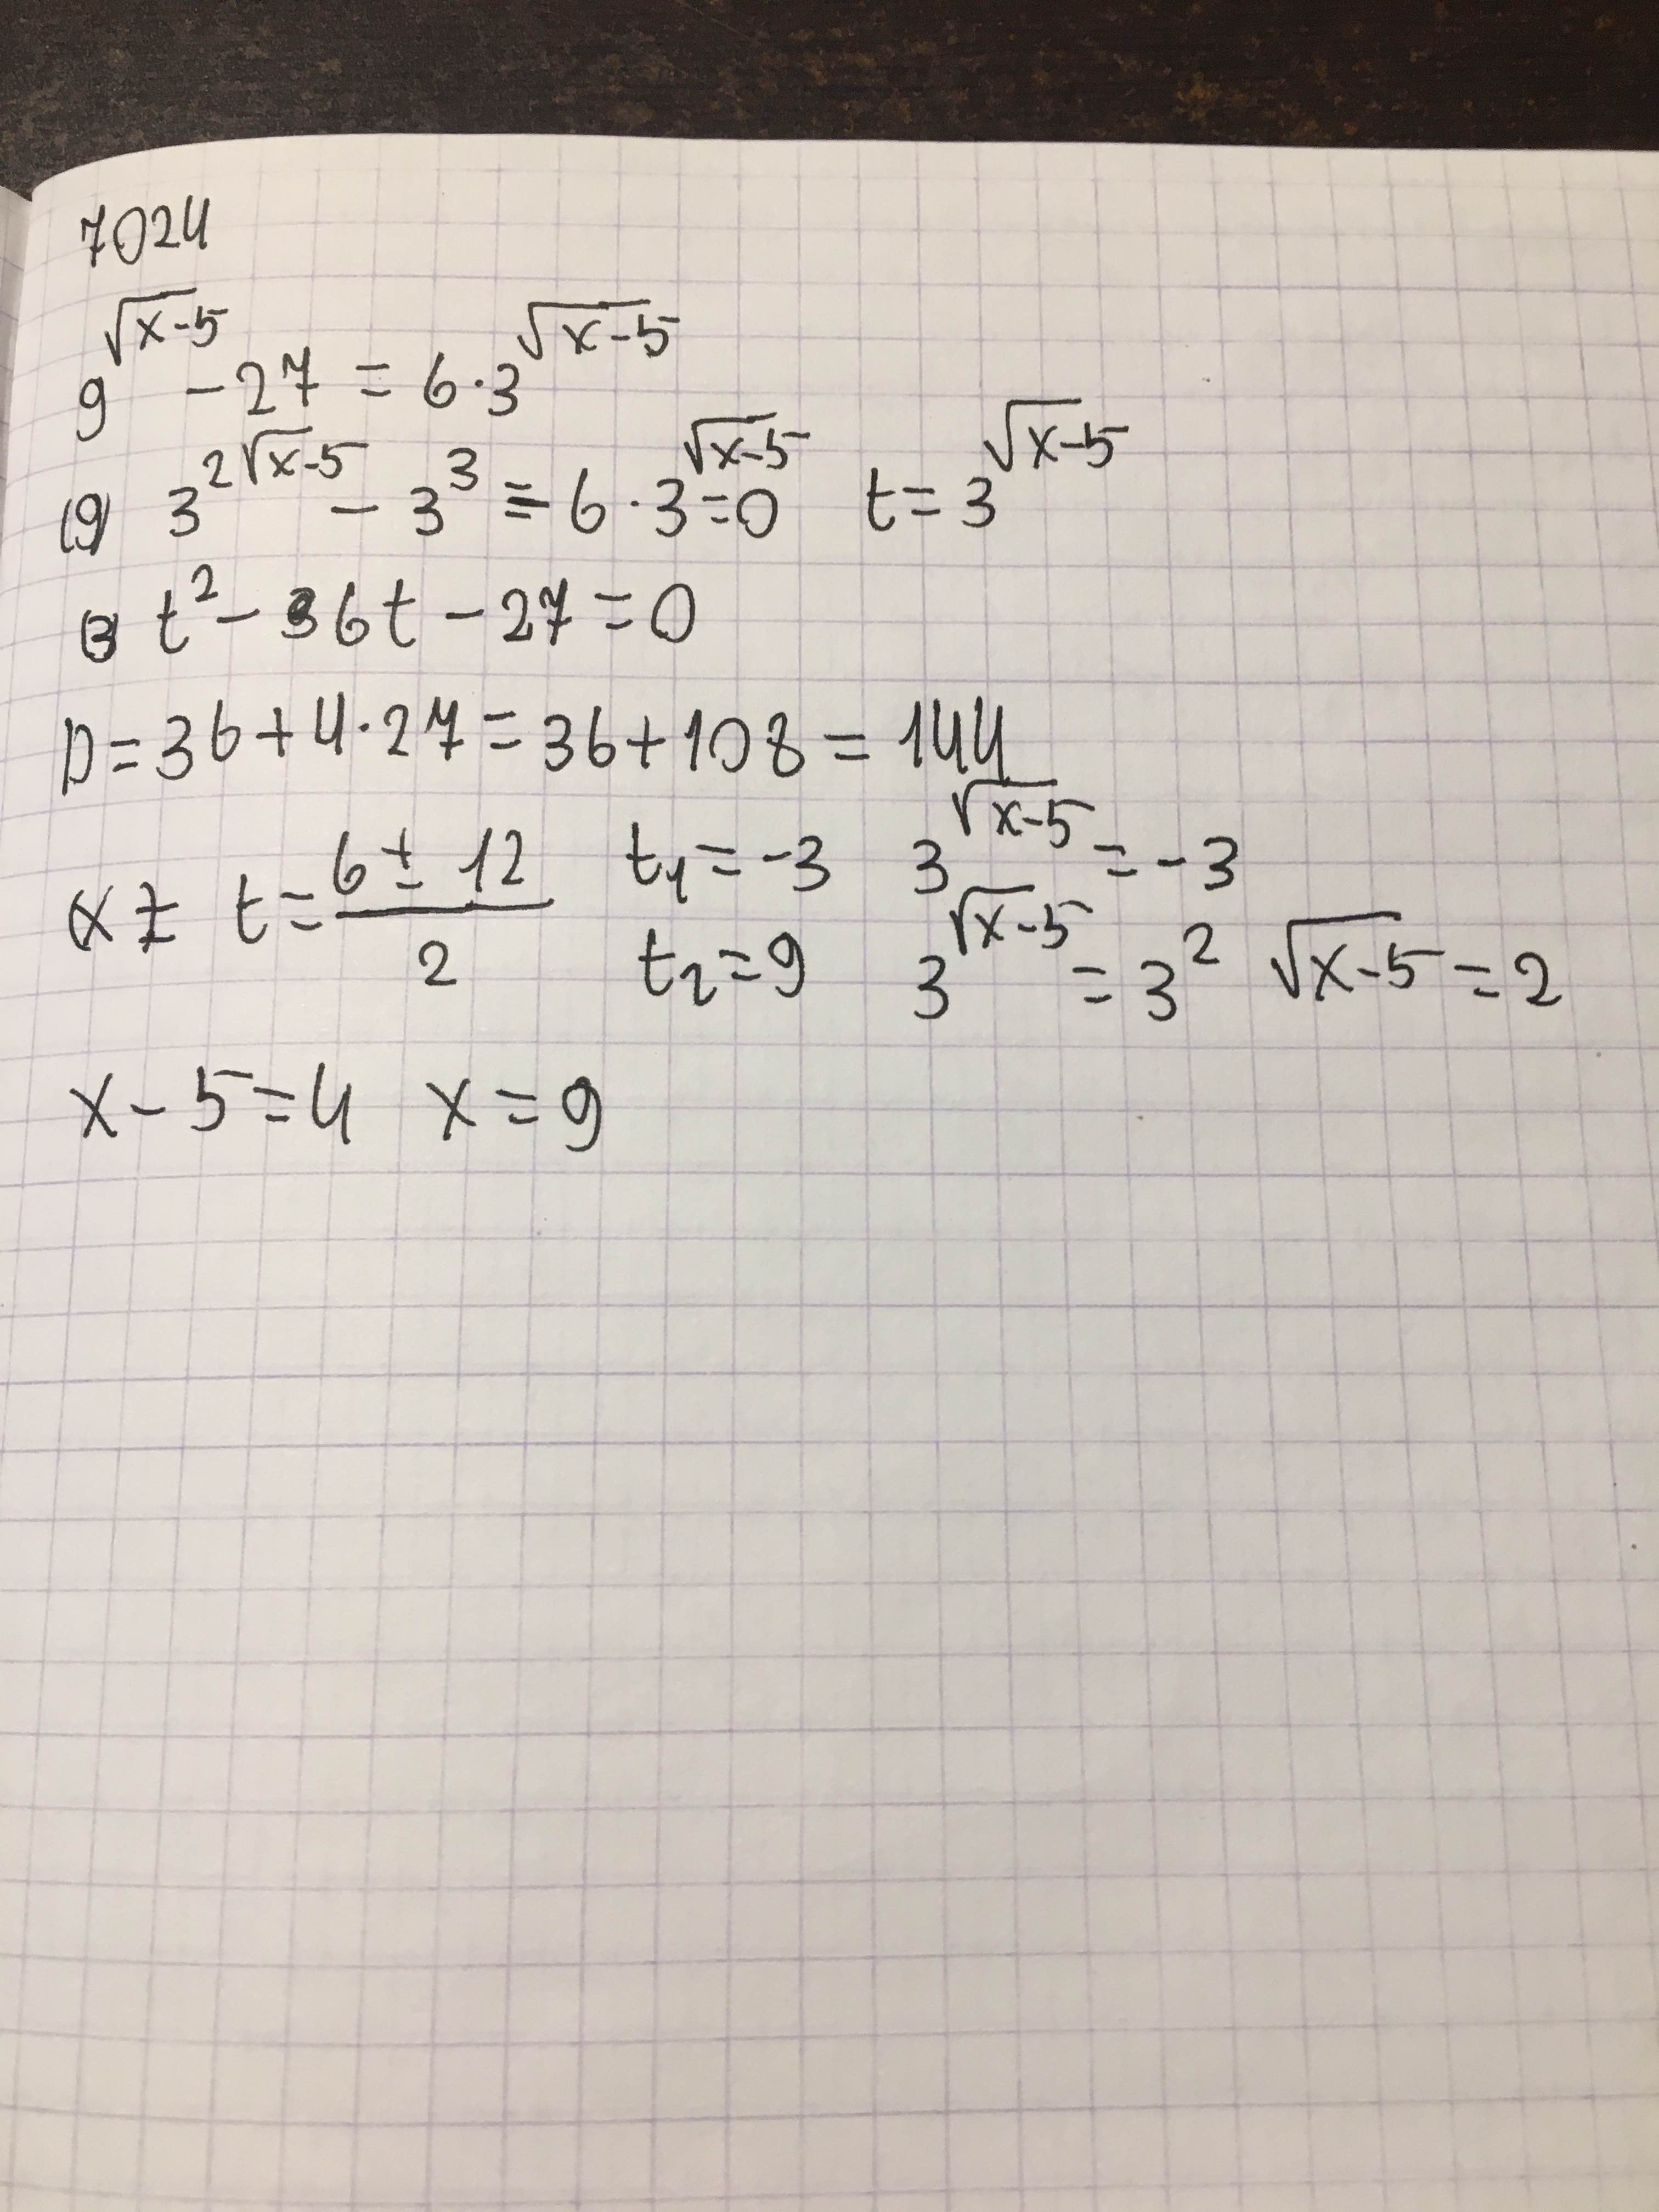 7024
9^√(x-5) - 27 = 6·3^√(x-5)
3^(2√(x-5)) - 3^3 = 6·3^√(x-5) = 0 t = 3^√(x-5)
t² - 6t - 27 = 0
D = 36 + 4·27 = 36 + 108 = 144
t = (6 ± 12)/2 t₁ = -3 3^√(x-5) = -3
t₂ = 9 3^√(x-5) = 3² √(x-5) = 2
x - 5 = 4 x = 9